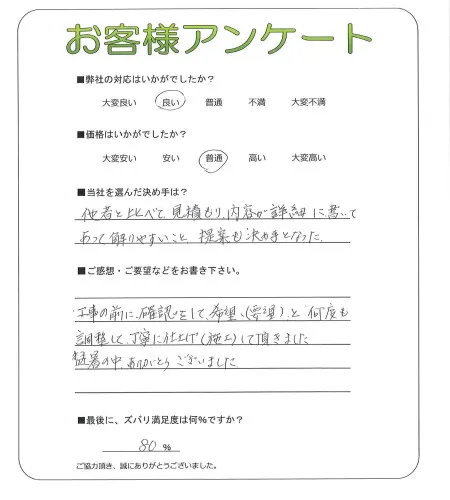 お客様アンケート
■弊社の対応はいかがでしたか?
大変良い 良い 普通 不満 大変不満
■価格はいかがでしたか?
大変安い 安い 普通 高い 大変高い
■当社を選んだ決め手は?
他者と比べて、見積もり、内容が詳細に書いて
あって解りやすいこと、提案も決め手となった。
■ご感想・ご要望などをお書き下さい。
工事の前に、確認をして、希望、(要望)、と何度も
調整して、丁寧に仕上げ(施工)して頂きました
猛暑の中、ありがとうございました
■最後に、ズバリ満足度は何%ですか?
80 %
ご協力頂き、誠にありがとうございました。